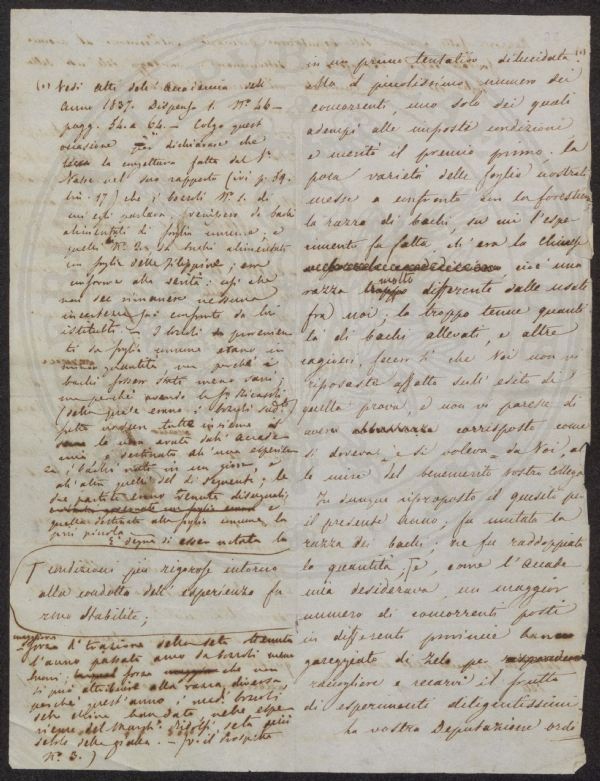 (1) Vedi Atti dell'Accademia dell'
Anno 1837. Dispensa 1. N.° 46 —
pagg. 54 a 64. — Colgo quest'
occasione per dichiarare che
la congettura fatta dal
nel suo rapporto (ivi p. 59.
lin. 17) che i bozzoli N.° 1. di
cui egli parlava, provenissero da bachi
alimentati di foglia comune, e
quelli N.° 2. da bachi alimentati
con foglia delle Filippine, era
conforme alla verità: così che
non dee rimanere nessuna
incertezza
istituiti. — I bozoli provenien
ti da foglia comune erano in
minor quantità, non perchè i
bachi fossero stati meno sani;
ma perchè avendo la
(della quale erano i bozzoli sudd.ti)
tutta insieme
la uova avute dall'Accade
mia e destinate all'una esperien
za, i bachi nati in un giorno, e
all'altra quelli del dì seguente; le
due partite erano venute disuguali;
e
quella destinata alla foglia comune, la
più piccola.
È degno di esser notata la
condizioni più rigorose intorno
alla condotta dell'esperienze fu
rono stabilite;
maggiore
trazione della seta
l'anno passato anno da bozzoli meno
buoni; forse che non
si può attribuire alla razza diversa
perchè quest'anno, i medi bozzoli
della China han dato nelle espe
rienze del March.e Ridolfi, seta più
sottile della gialla. — (V. il Prospetto
N.° 3.)
in un primo tentativo dilucidata (1)
Alla il piccolissimo numero dei
concorrenti, uno solo dei quali
adempì alle imposte condizioni
e meritò il premio primo, la
poca varietà delle foglie nostrali
messe a confronto con la forestiera,
la razza di bachi, su cui l'espe
rimento fu fatto, ch'era la chinese
cioè una
razza molto differente dalle usate
fra noi; la troppo tenue quanti
tà di bachi allevati, e altre
cagioni, fecer sì che Voi non vi
riposaste affatto sull'esito di
quella prova, e non vi paresse di
avere corrisposto come
si doveva, e si voleva da Voi, al
le mire del benemerito vostro collega.
Fu dunque riproposto il quesito per
il presente anno; fu mutata la
razza dei bachi; ne fu raddoppiata
la quantità, e, come l'Accade
mia desiderava, un maggior
numero di concorrenti posti
in differenti provincie han
gareggiato di zelo per
raccogliere e recarvi il frutto
di esperimenti diligentissimi.
La vostra Deputazione ordi